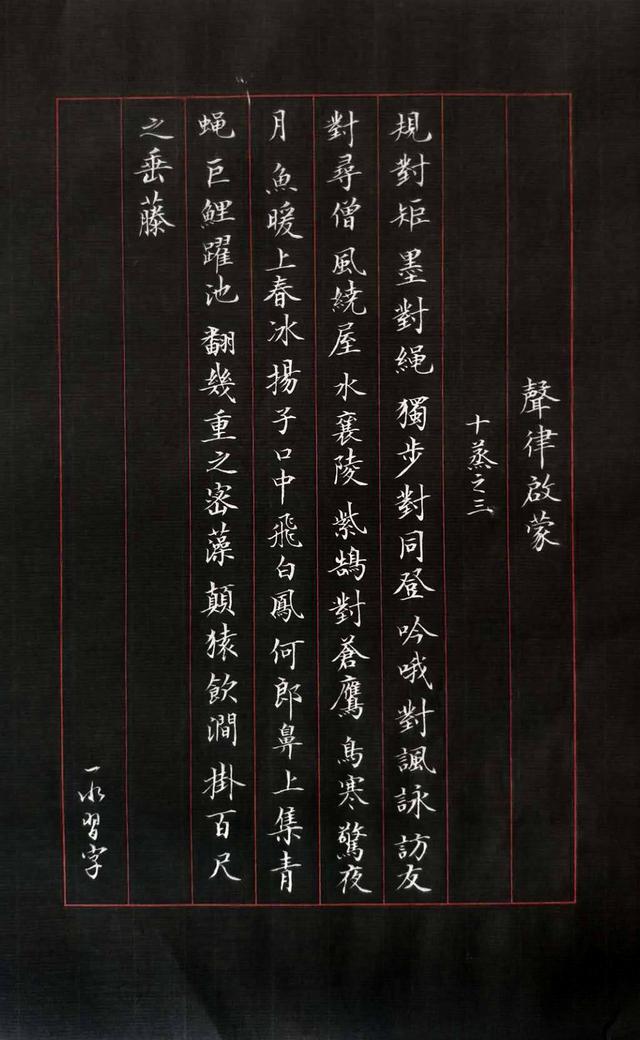 聲律啟蒙
十蒸之三
規對矩墨對繩獨步對同登吟哦對諷詠訪友
對尋僧風繞屋水襄陵紫鵠對蒼鷹鳥寒驚夜
月魚暖上春冰揚子口中飛白鳳何郎鼻上集青
蝇巨鯉躍池翻幾重之密藻顛猿飲澗掛百尺
之垂藤
一水習字